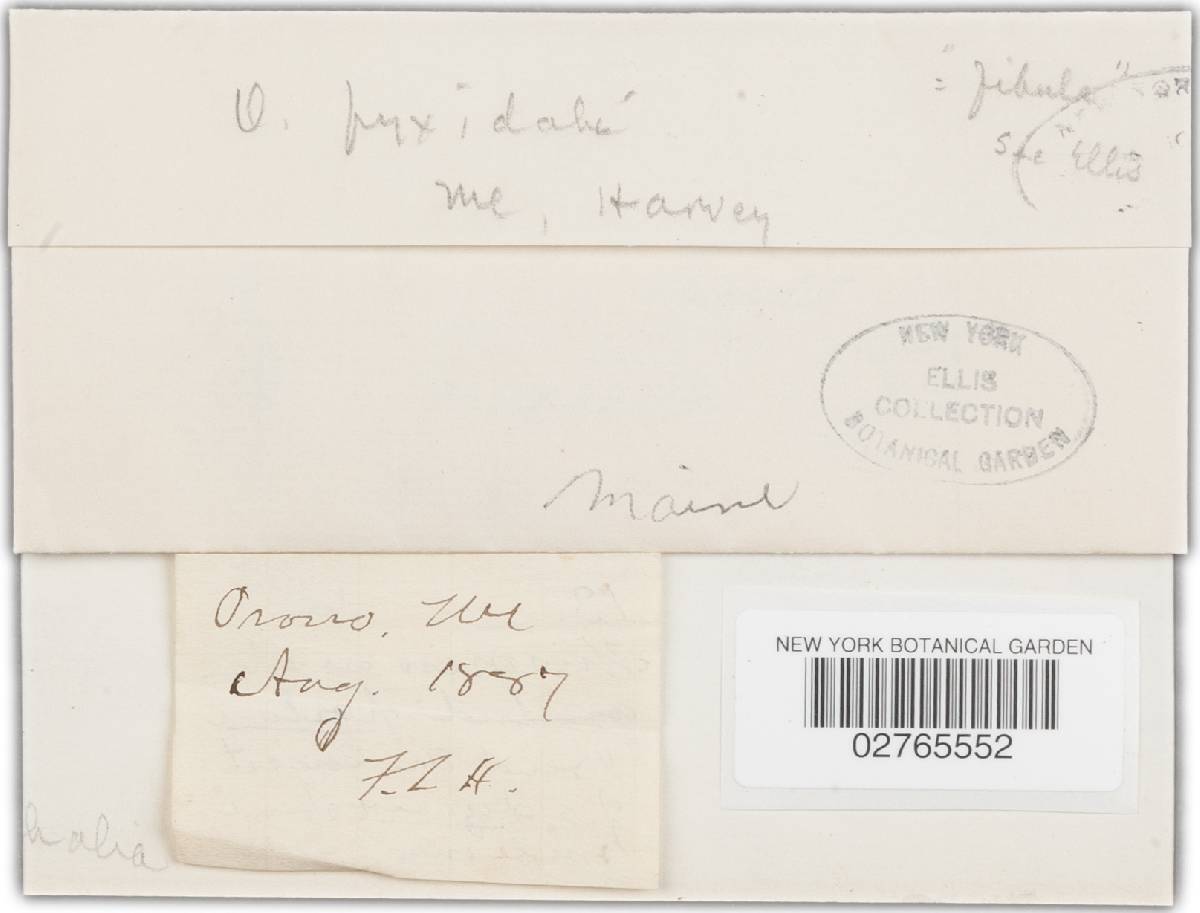 O. pyxidata
= "fibula"
see "Ellis"
Me, Harvey
NEW YORK
ELLIS
COLLECTION
BOTANICAL GARDEN
Maine
Orono, Me
Aug. 1887
F.L.H.
NEW YORK BOTANICAL GARDEN
02765552